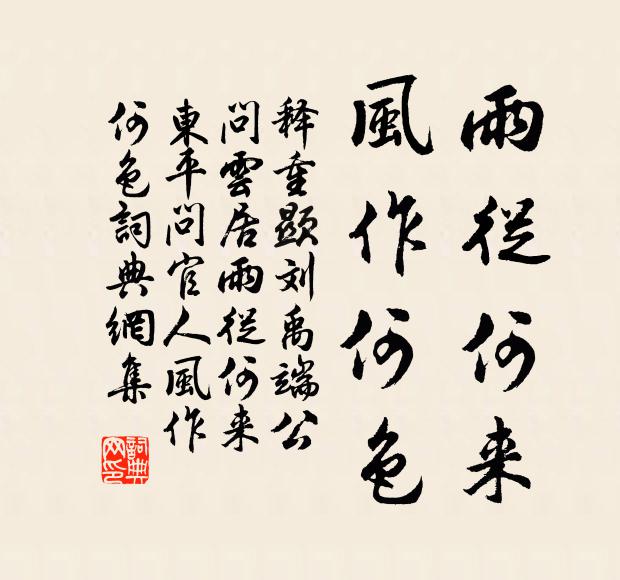 雨從何来
風作何色
释重顯刘禹端公
問雲居雨從何来
東平問官人風作
何色詞典網集
詞典網印